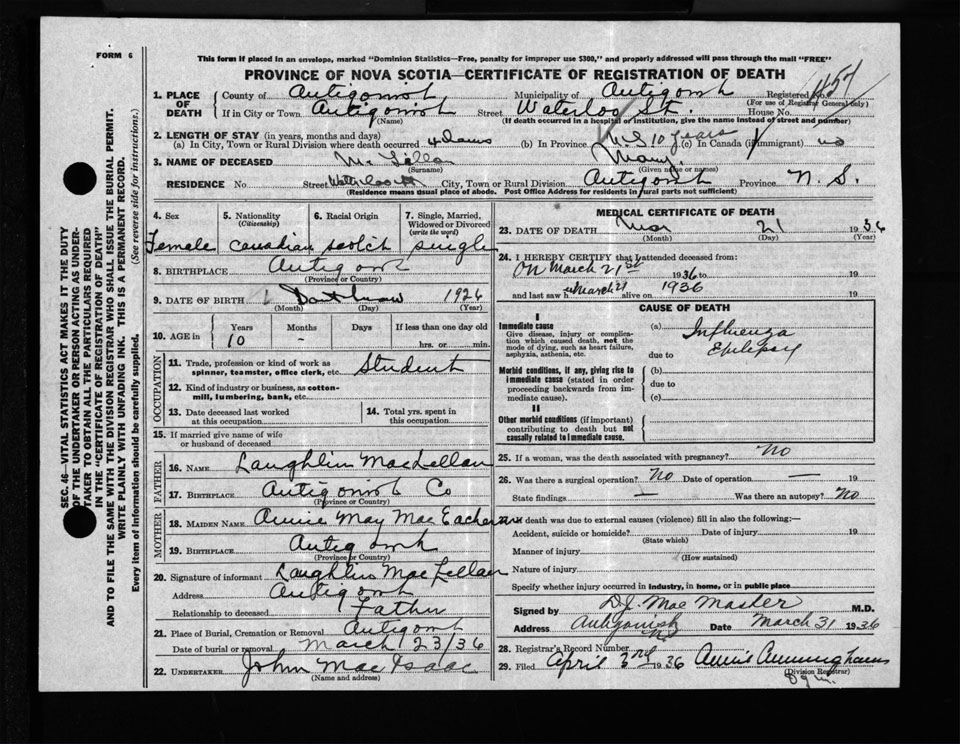 FORM 6
This form if placed in an envelope, marked "Dominion Statistics—Free, penalty for improper use $300," and properly addressed will pass through the mail "FREE"
PROVINCE OF NOVA SCOTIA—CERTIFICATE OF REGISTRATION OF DEATH
SEC. 46—VITAL STATISTICS ACT MAKES IT THE DUTY
OF THE UNDERTAKER OR PERSON ACTING AS UNDER-
TAKER TO OBTAIN ALL THE PARTICULARS REQUIRED
IN THE "CERTIFICATE OF REGISTRATION OF DEATH"
AND TO FILE THE SAME WITH THE DIVISION REGISTRAR WHO SHALL ISSUE THE BURIAL PERMIT.
WRITE PLAINLY WITH UNFADING INK. THIS IS A PERMANENT RECORD.
Every item of Information should be carefully supplied. (See reverse side for instructions.)
1. PLACE OF DEATH County of Antigonish Municipality of Antigonish Registered No.
(For use of Registrar General only)
If in City or Town Antigonish Street Waterloo St. House No.
(Name) (If death occurred in a hospital or institution, give the name instead of street and number)
2. LENGTH OF STAY (in years, months and days)
(a) In City, Town or Rural Division where death occurred (b) In Province N.S 10 years (c) In Canada (if immigrant) no
3. NAME OF DECEASED McLellan Mary
(Surname) (Given name or names)
RESIDENCE No. Street Waterloo St City, Town or Rural Division Antigonish Province N. S.
(Residence means usual place of abode. Post Office Address for residents in rural parts not sufficient)
4. Sex Female
5. Nationality (Citizenship) Canadian
6. Racial Origin Scotch
7. Single, Married, Widowed or Divorced (write the word) single
8. BIRTHPLACE Antigonish
(Province or Country)
9. DATE OF BIRTH Dont know 1926
(Month) (Day) (Year)
10. AGE in Years 10 Months - Days If less than one day old hrs. or min.
OCCUPATION
11. Trade, profession or kind of work as spinner, teamster, office clerk, etc. Student
12. Kind of industry or business, as cotton-mill, lumbering, bank, etc.
13. Date deceased last worked at this occupation
14. Total yrs. spent in this occupation
15. If married give name of wife or husband of deceased
FATHER
16. NAME Laughlin MacLellan
17. BIRTHPLACE Antigonish Co
(Province or Country)
MOTHER
18. MAIDEN NAME Annie May MacEachern
19. BIRTHPLACE Antigonish
(Province or Country)
20. Signature of informant Laughlin MacLellan
Address Antigonish
Relationship to deceased Father
21. Place of Burial, Cremation or Removal Antigonish
Date of burial or removal March 23/36
22. UNDERTAKER John MacIsaac
(Name and address)
MEDICAL CERTIFICATE OF DEATH
23. DATE OF DEATH Mar 21 1936
(Month) (Day) (Year)
24. I HEREBY CERTIFY that I attended deceased from:
On March 21st 1936 to 19
and last saw h er alive on March 21 1936 19
CAUSE OF DEATH
I
Immediate cause
Give disease, injury or complication which caused death, not the mode of dying, such as heart failure, asphyxia, asthenia, etc.
(a) Influenza
due to Epilepsy
Morbid conditions, if any, giving rise to immediate cause (stated in order proceeding backwards from immediate cause).
(b)
due to
(c)
II
Other morbid conditions (if important) contributing to death but not causally related to immediate cause.
25. If a woman, was the death associated with pregnancy? No
26. Was there a surgical operation? No Date of operation —
State findings — Was there an autopsy? No
If death was due to external causes (violence) fill in also the following:—
Accident, suicide or homicide? Date of injury 19
(State which)
Manner of injury
(How sustained)
Nature of injury
Specify whether injury occurred in industry, in home, or in public place
Signed by D.J. MacMaster M.D.
Address Antigonish NS Date March 31 1936
28. Registrar's Record Number
29. Filed April 3rd 1936 Annie Cunningham
(Division Registrar)